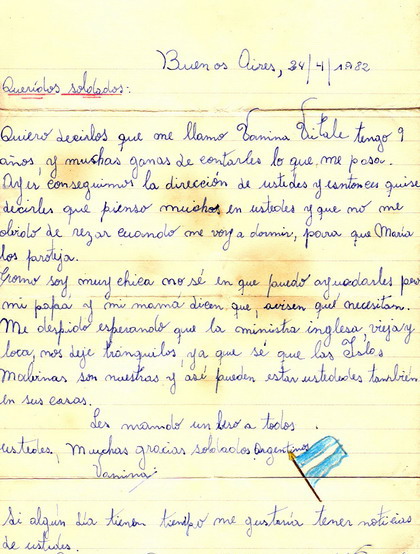 Buenos Aires, 24/4/1982
Queridos soldados:
Quiero decirlos que me llamo Vanina Vitale tengo 9
años, y muchas ganas de contarles lo que me pasa.
Ayer conseguimos la dirección de ustedes y entonces quise
decirles que pienso mucho en ustedes y que no me
olvido de rezar cuando me voy a dormir, para que María
los proteja.
Como soy muy chica no sé en que puedo ayudarles pero
mi papá y mi mamá dicen, que, avisen qué necesitan.
Me despido esperando que la ministra inglesa, vieja y
loca, nos deje tranquilos, ya que sé que las Islas
Malvinas son nuestras y así pueden estar ustedes también
en sus casas.
Les mando un beso a todos
ustedes, Muchas gracias soldados Argentinos
Vanina
Si algún día tienen tiempo me gustaría tener noticias
de ustedes.